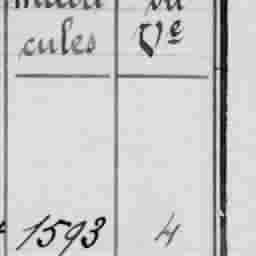 cules Ve
1593 4